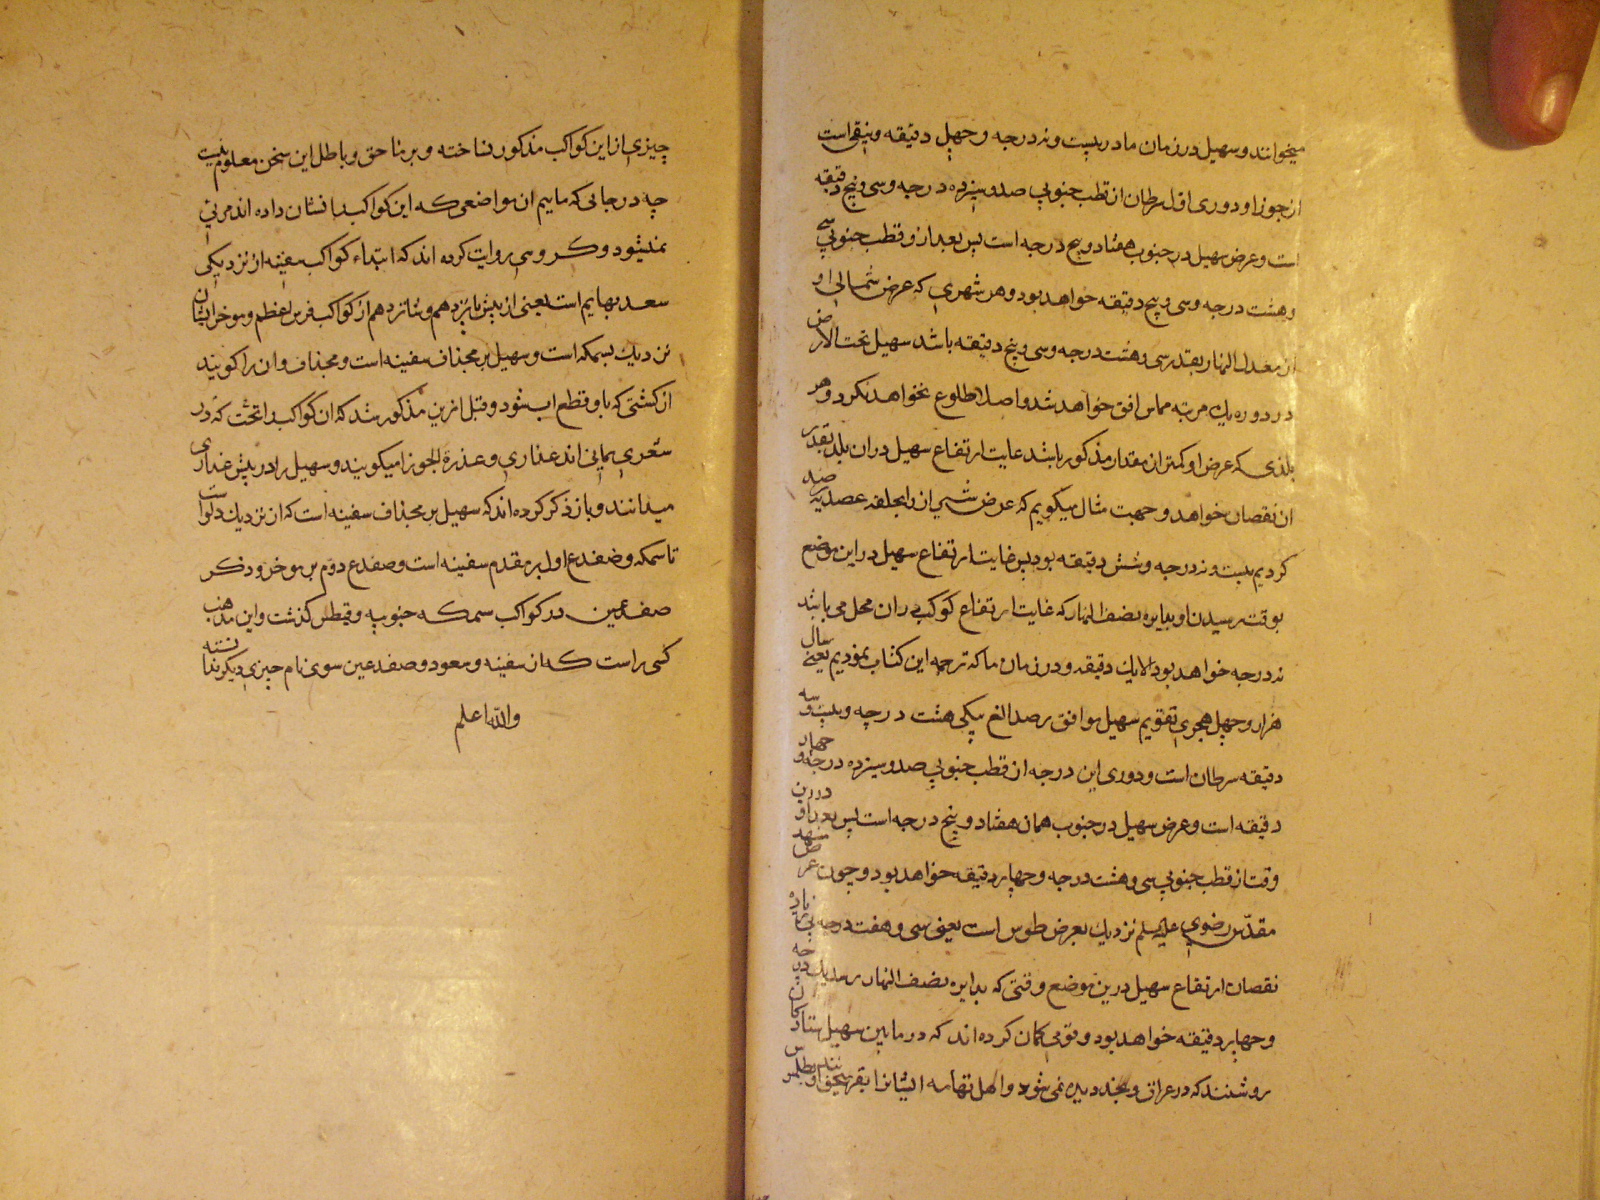 میخوانند و سهیل در زمان ما در بیست و نه درجه و چهل دقیقه و نیم است
از جوزا و دوری اول سرطان از قطب جنوبی صد و سیزده درجه و سی و پنج دقیقه
است و عرض سهیل در جنوب هفتاد و پنج درجه است پس بعد از و قطب جنوبی سی
و هشت درجه و سی و پنج دقیقه خواهد بود و هر شهری که عرض شمالی او
از معدل النهار بقدر سی و هشت درجه و سی و پنج دقیقه باشد سهیل تحت الارض
در دوره یک مرتبه مماس افق خواهد شد و اصلا طلوع نخواهد نکرد و هر
بلدی که عرض او کمتر از مقدار مذکور باشد غایت ارتفاع سهیل در ان بلد بقدر
ان نقصان خواهد و جهت مثال میکویم که عرض شیراز را بجلقه عضدیه رصد
کردیم بیست و نه درجه و شش دقیقه بود پس غایت ارتفاع سهیل در این موضع
بوقت رسیدن او بدایره نصف النهار که غایت ارتفاع کوکب در ان محل می باشد
نه درجه خواهد بود الا یک دقیقه و در زمان ما که ترجمه این کتاب نمودیم یعنی سال
هزار و چهل هجری تقویم سهیل موافق رصد الغ بیکی هشت درجه و بیست و سه
دقیقه سرطان است و دوری این درجه از قطب جنوبی صد و سیزده درجه و چهار
دقیقه است و عرض سهیل در جنوب همان هفتاد و پنج درجه است پس بعد او درین
وقت از قطب جنوبی سی و هشت درجه و چهار دقیقه خواهد بود و چون عرض مشهد
مقدس رضوی علیه السلم نزدیک بعرض طوس است یعنی سی و هفت درجه بی زیاده
نقصان ارتفاع سهیل درین موضع وقتی که بدایره نصف النهار رسد یک درجه
و چهار دقیقه خواهد بود و قومی کمان کرده اند که در مابین سهیل ستارکان
روشنند که در عراق و نجد دیده نمی شود و اهل تهامه ایشانرا بقر میخوانند و بطلمیوس
چیزی از این کواکب مذکور نساخته و بر ما حق و باطل این سخن معلوم نیست
چه در جایی که ماییم ان مواضعی که این کواکب را نشان داده اند مرئی
نمیشود و کروهی روایت کرده اند که ابتداء کواکب سفینه از نزدیکی
سعد بهایم است یعنی از پیش پانزدهم و شانزدهم از کواکب فرس اعظم و موخر ایشان
نزدیک بسمکه است و سهیل بر مجذاف سفینه است و مجذاف و ان را کویند
از کشتی که باو قطع اب شود و قبل ازین مذکور شد که ان کواکب را تحت که در
شعری یمانی اند عذاری و عذرة الجوزا میکویند و سهیل را در پیش عذاری
میدانند و باز ذکر کرده اند که سهیل بر مجذاف سفینه است که از نزدیک دلو است
تا سمکه و ضفدع اول بر مقدم سفینه است و ضفدع دوم بر موخر و ذکر
ضفدعین در کواکب سمکه جنوبیه و قیطس کذشت و این مذهب
کسی راست که از سفینه و سعود و ضفدعین سوی نام چیزی دیکر ندانسته
والله اعلم